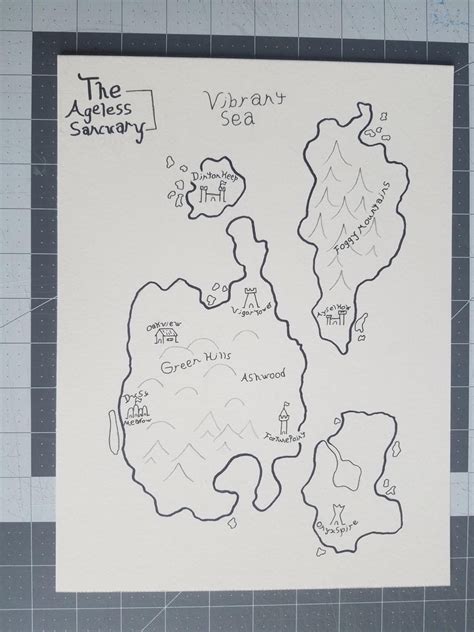 The
Ageless
Sancuary
Vibrant
Sea
Dinton Keep
Foggy Mountains
Vigor Tower
Oakview
Green Hills
Ashwood
Dusk
Meadow
Fortune Point
Onyx Spire